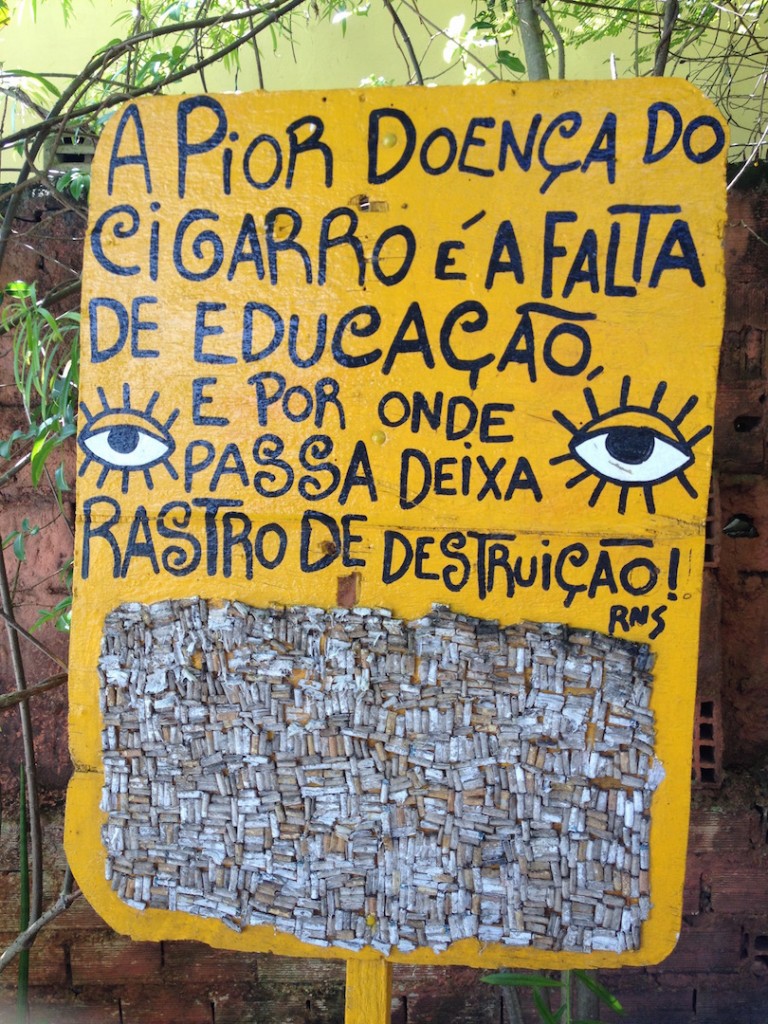 A PiOR DOENÇA DO
CiGARRO É A FALTA
DE EDUCAÇÃO,
E POR ONDE
PASSA DEiXA
RASTRO DE DESTRUiÇÃO!
RNS